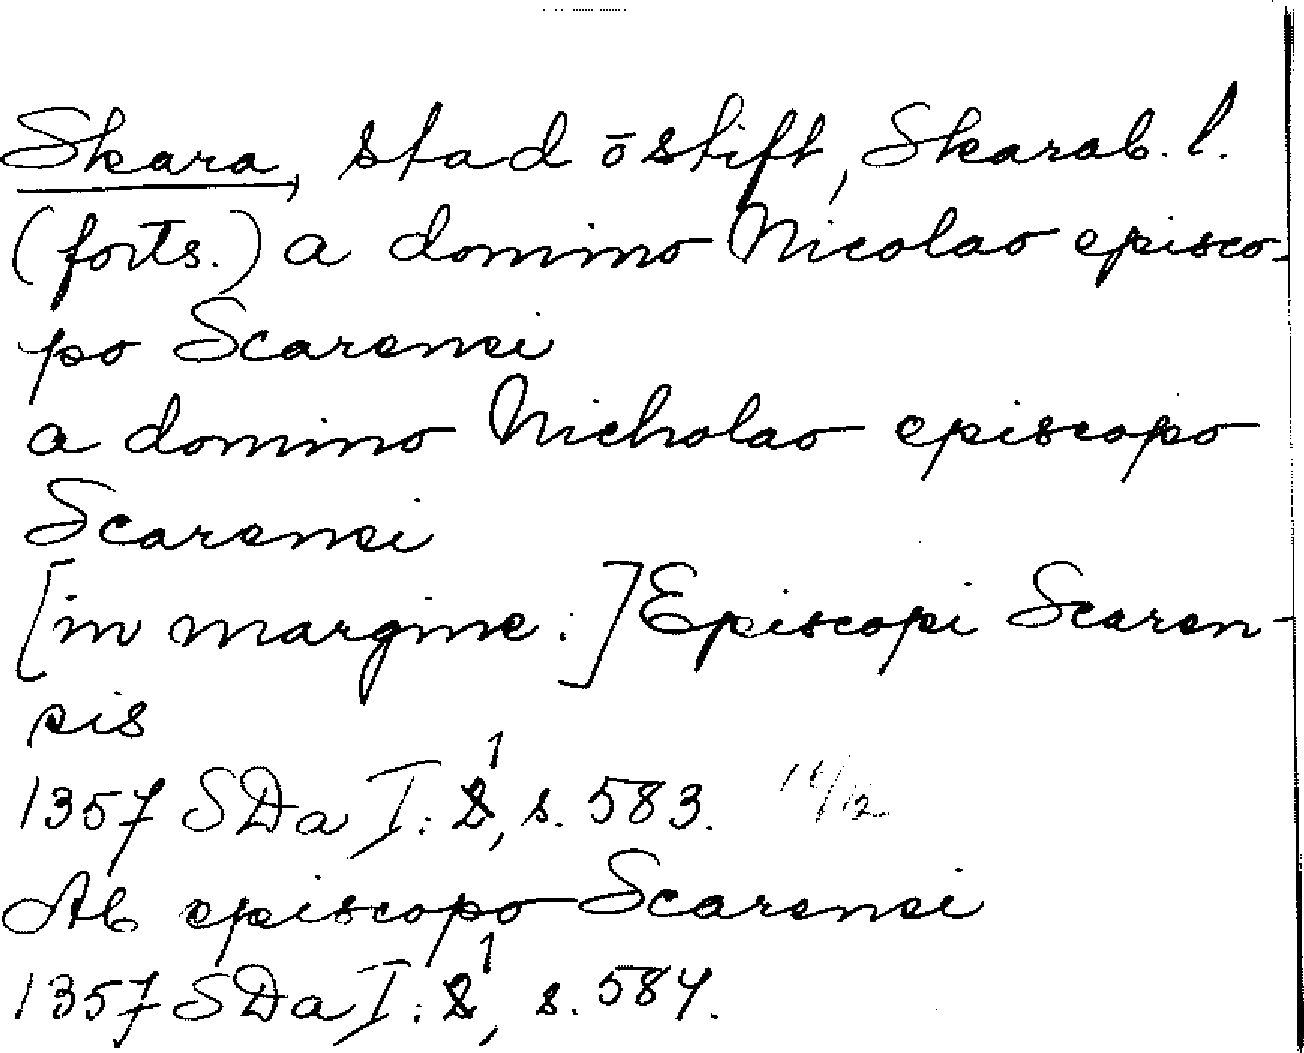 Skara, stad o stift, Skarab. l.
(forts.) a domino Nicolao episco-
po Scarensi
a domino Nicholao episcopo
Scarensi
[in margine:] Episcopi Scaren-
sis
1357 SDa I: 1, s. 583.
Ab episcopo Scarensi
1357 SDa I: 1, s. 584.